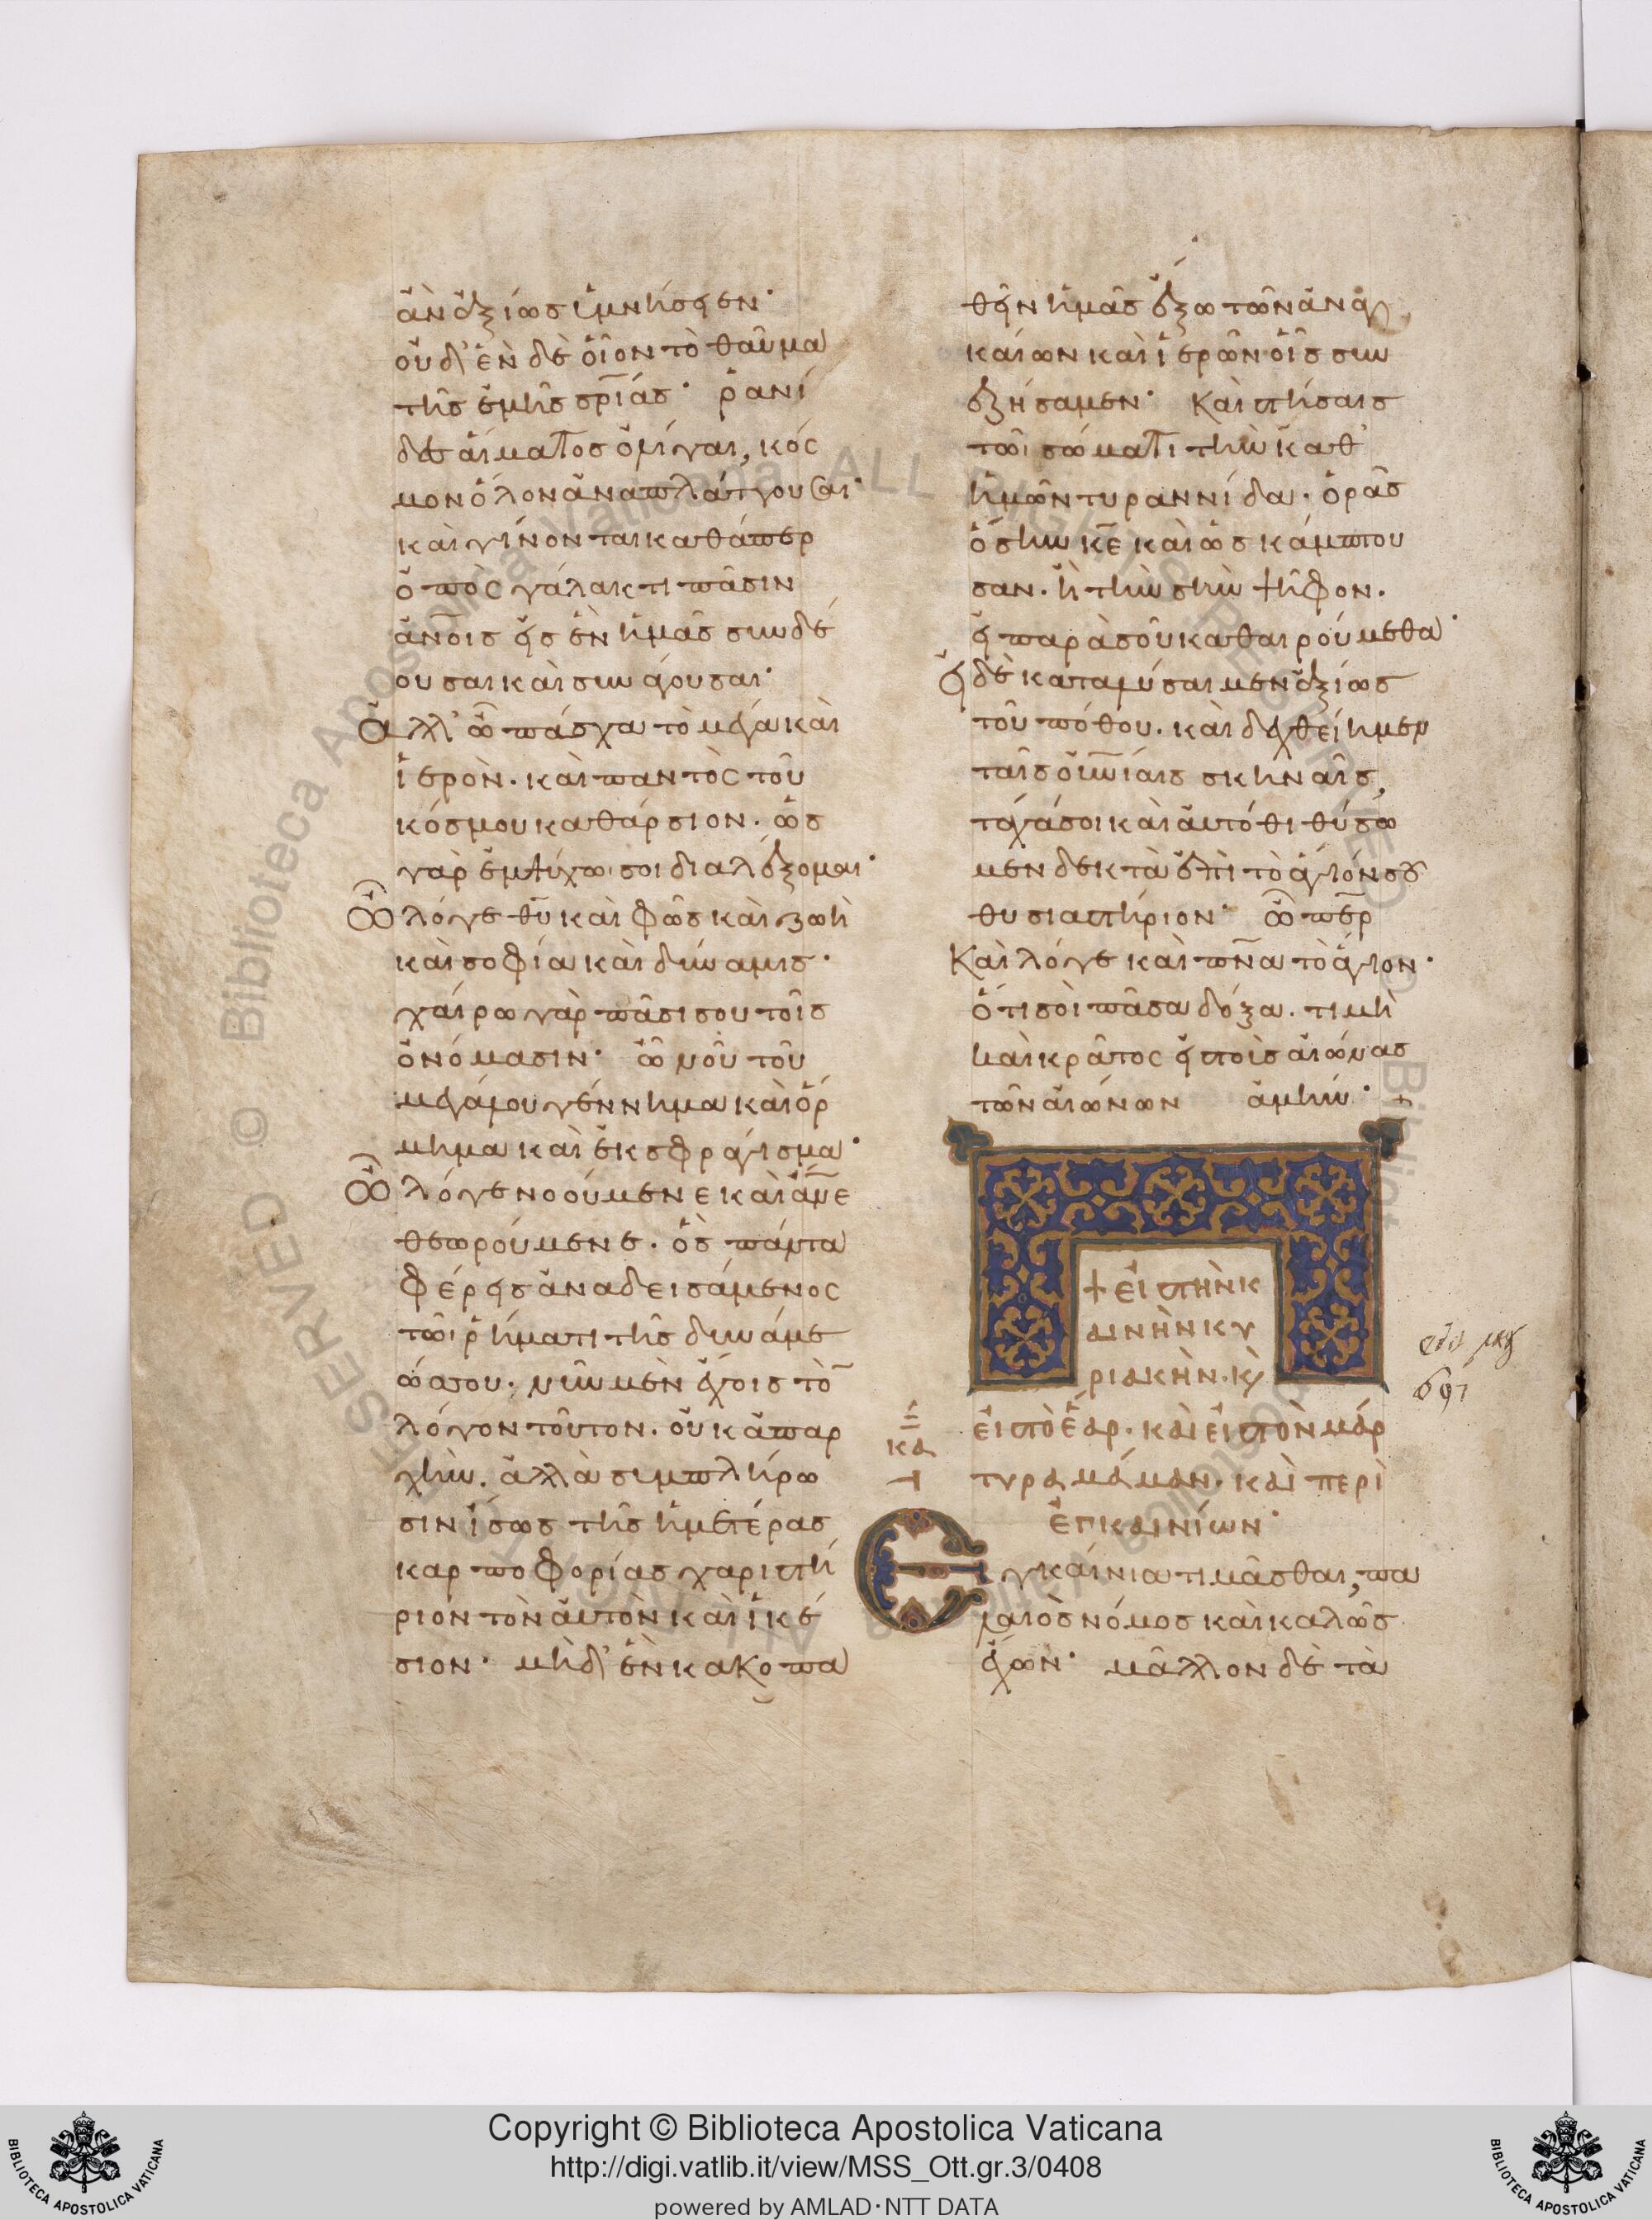 ἂν ἀξίως ὑμνήσειεν·
οὐδ' ἓν δὲ οἷον τὸ θαῦμα
τῆς ἐμῆς σρίας· ῥανί
δες αἵματος ὀλίγαι, κόσ
μον ὅλον ἀναπλάττουσαι·
καὶ γίνονται καθάπερ
ὀπὸς γάλακτι πᾶσιν
ἀνοις εἰς ἓν ἡμᾶς συνδέ
ουσαι καὶ συνάγουσαι·
Ἀλλ' ὦ πάσχα τὸ μέγα καὶ
ἱερὸν. καὶ παντὸς τοῦ
κόσμου καθάρσιον. ὡς
γὰρ ἐμψύχω σοι διαλέξομαι·
Ὦ λόγε θῦ καὶ φῶς καὶ ζωὴ
καὶ σοφία καὶ δύναμις·
χαίρω γὰρ πᾶσι σου τοῖς
ὀνόμασιν· ὦ νοῦ τοῦ
μεγάλου γέννημα καὶ ὅρ
μημα καὶ ἐκσφράγισμα·
Ὦ λόγε νοούμενε καὶ ἄνε
θεωρούμενε. ὃς πάντα
φέρεις ἀναδεισάμενος
τῶι ῥήματι τῆς δυνάμε
ώς σου. νῦν μὲν ἔχοις τὸ
λόγον τοῦτον. οὐκ ἀπαρ
χὴν. ἀλλὰ συμπλήρω
σιν ἴσως τῆς ἡμετέρας
καρποφορίας χαριστή
ριον τὸν αὐτὸν καὶ ἱκέ
σιον· μὴδ' ἓν κακοπα
θεῖν ἡμᾶς ἔξω τῶν ἀναγ
καίων καὶ ἱερῶν οἷς συν
εζήσαμεν· Καὶ στήσαις
τῶι σώματι τὴν καθ'
ἡμῶν τυραννίδα. ὁρᾶς
ὅση κε καὶ ὡς κάμπτου
σαν. ἢ τὴν σὴν ψῆφον.
εἰ παρὰ σοῦ καθαιρούμεθα·
Εἰ δὲ καταλύσαιμεν ἀξίως
τοῦ πόθου. καὶ δεχθείημεν
ταῖς οὐνίαις σκηναῖς,
τάχα σοι καὶ αὐτόθι θύσω
μεν δεκτὰ ἐπὶ τὸ ἅγιόν σου
θυσιαστήριον· ὦ περ
Καὶ λόγε καὶ πνα τὸ ἅγιον·
ὅτι σοὶ πᾶσα δόξα. τιμὴ
καὶ κράτος εἰς τοὺς αἰῶνας
τῶν αἰώνων ἀμήν·
+ εἰς τὴν κ
αινὴν κυ
ριακὴν. κ
εἰς τὸ ἔαρ. καὶ εἰς τὸν μάρ
τυρα μάμαν. καὶ περὶ
ἐγκαινίων·
κα
Ἐγκαίνια τιμᾶσθαι, πα
λαιὸς νόμος καὶ καλῶς
ἔχων· μᾶλλον δὲ τὰ
Copyright © Biblioteca Apostolica Vaticana
http://digi.vatlib.it/view/MSS_Ott.gr.3/0408
powered by AMLAD·NTT DATA